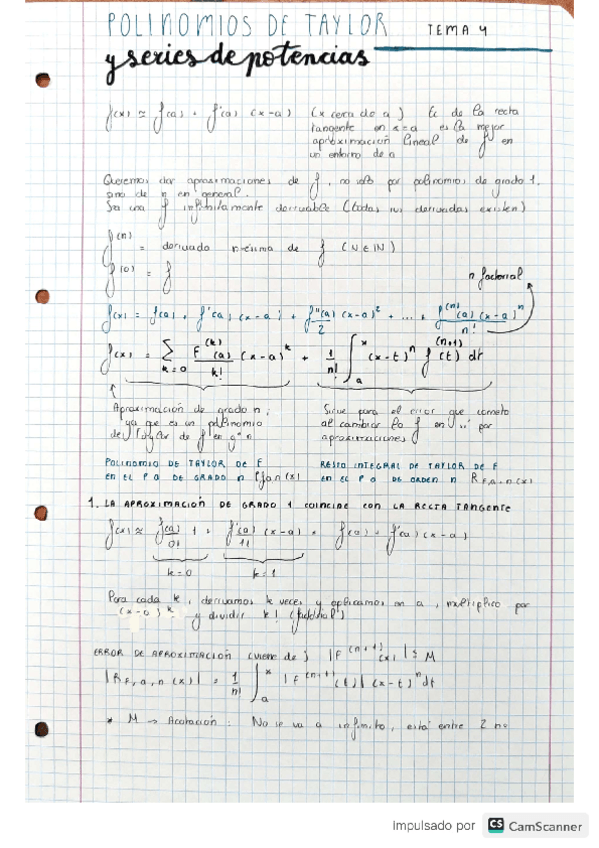 POLINOMIOS DE TAYLOR TEMA 4
y series de potencias
f(x) ≃ f(a) + f'(a) (x-a) (x cerca de a) Ec de la recta
tangente en x=a es la mejor
aproximación lineal de f en
un entorno de a
Queremos dar aproximaciones de f, no solo por polinomios de grado 1,
sino de n en general.
Sea una f infinitamente derivable (todas sus derivadas existen)
f^(n) = derivada n-ésima de f (n∈IN)
f^(0) = f
n factorial
f(x) = f(a) + f'(a) (x-a) + f''(a)/2 (x-a)^2 + ... + f^(n)(a) (x-a)^n / n!
f(x) = ∑ k=0 F^(k)(a)/k! (x-a)^k + 1/n! ∫_a^x (x-t)^n f^(n+1)(t) dt
Aproximación de grado n; Sirve para el error que cometo
ya que es un polinomio al cambiar la f en por
de Taylor de f en gº n aproximaciones
POLINOMIO DE TAYLOR DE F RESTO INTEGRAL DE TAYLOR DE F
EN EL P a DE GRADO n EN EL P a DE ORDEN n R F,a,n(x)
1. LA APROXIMACIÓN DE GRADO 1 COINCIDE CON LA RECTA TANGENTE
f(x) ≃ f(a)/0! 1 + f'(a)/1! (x-a) = f(a) + f'(a) (x-a)
k=0 k=1
Para cada k, derivamos k veces y aplicamos en a, multiplico por
(x-a)^k y dividir k! (factorial)
ERROR DE APROXIMACIÓN (viene de) |F^(n+1)(x)| ≤ M
|R F,a,n (x)| = 1/n! ∫_a^x |F^(n+1)(t)| (x-t)^n dt
* M → Acotación: No se va a infinito, está entre 2 nº
Impulsado por CS CamScanner